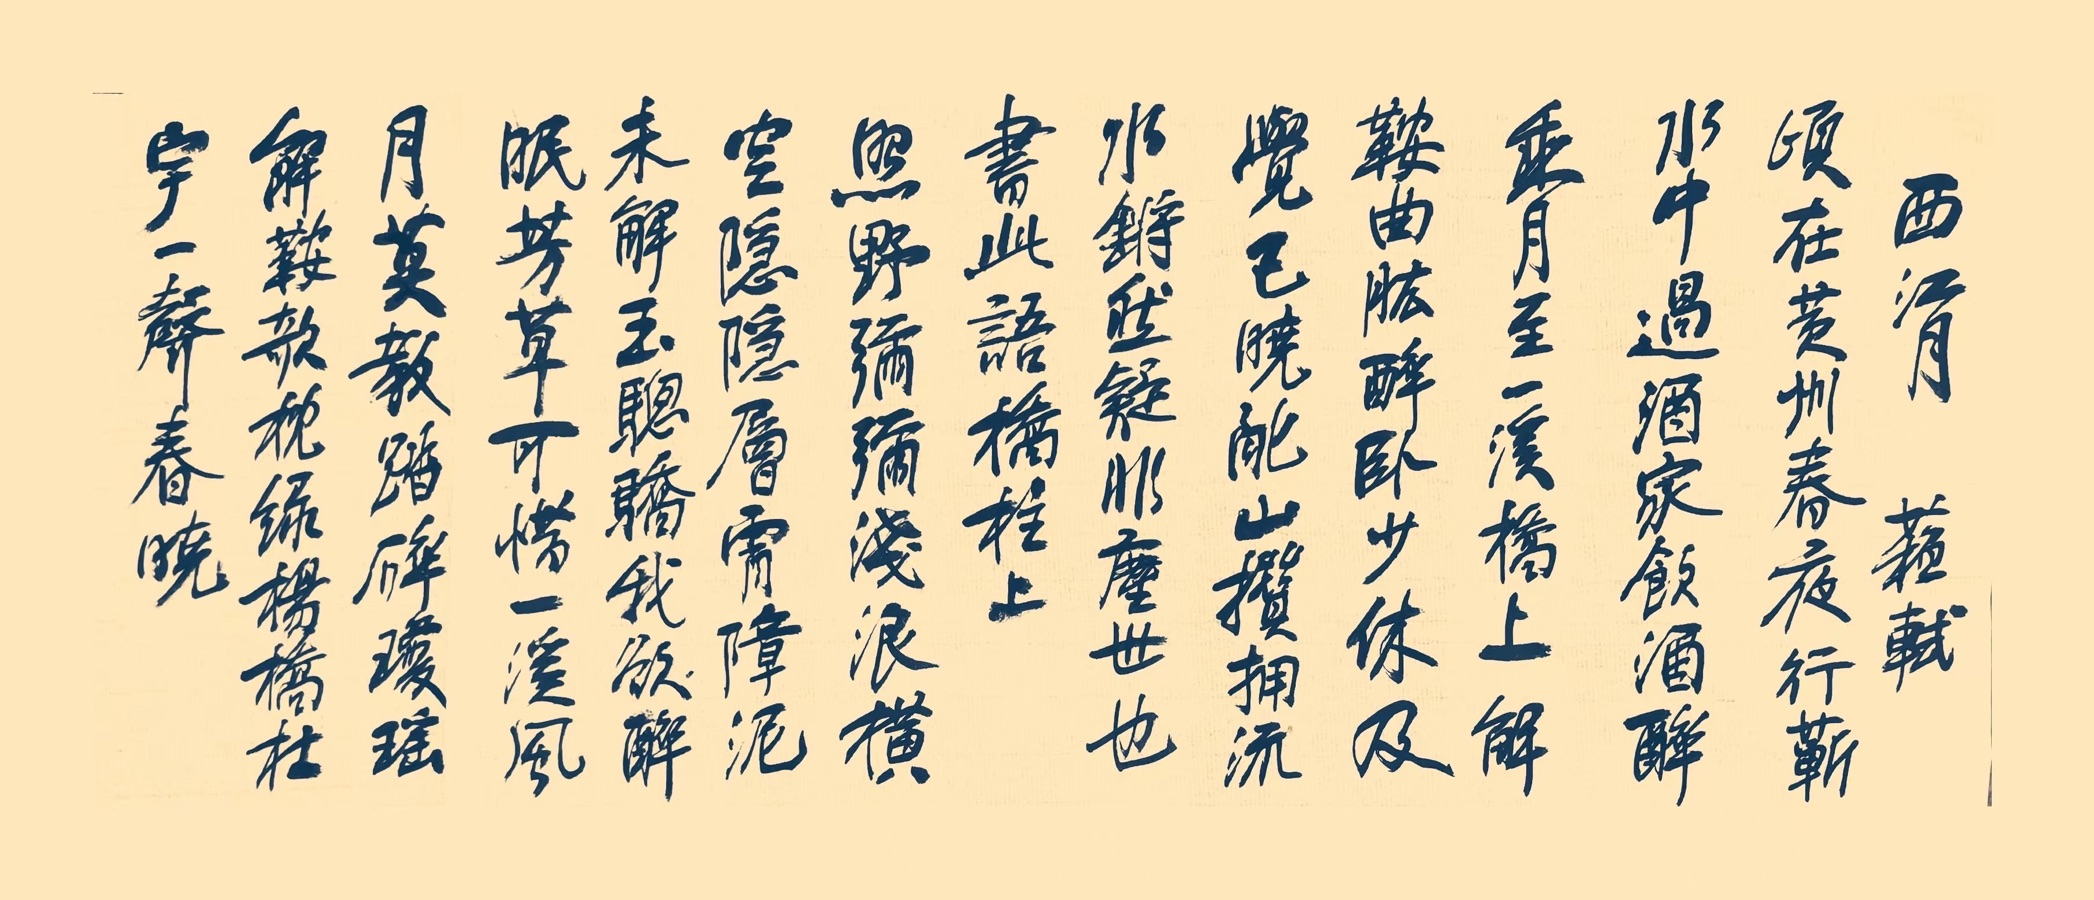 西江月 蘇軾
頃在黄州春夜行蘄
水中過酒家飲酒醉
乘月至一溪橋上解
鞍曲肱醉臥少休及
覺已曉亂山攢擁流
水鏘然疑非塵世也
書此語橋柱上
照野彌彌淺浪橫
空隱隱層霄障泥
未解玉驄驕我欲醉
眠芳草可惜一溪風
月莫教踏碎瓊瑤
解鞍欹枕綠楊橋杜
宇一聲春曉